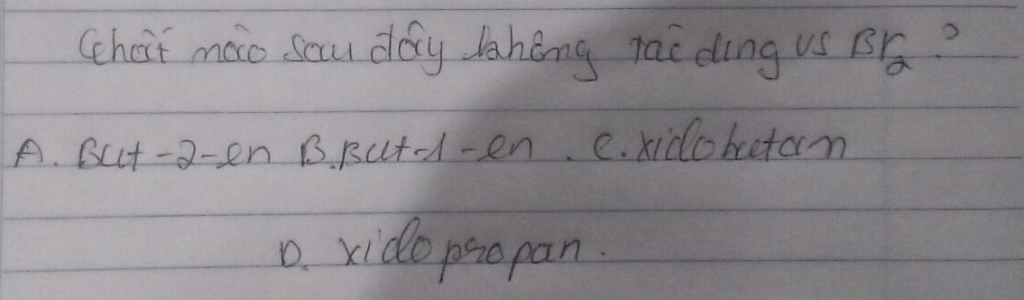 Chất nào sau đây không tác dụng vs Br2 ?
A. But-2-en B. But-1-en . C. xiclobutan
D. xiclopropan.